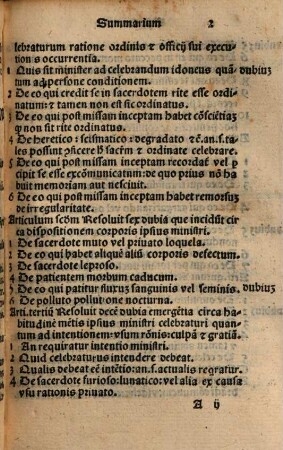 Summarium 2
lebraturum ratione ordinis ⁊ officij sui execu-
tionis occurrentia.
1 Quis sit minister ad celebrandum idoneus quā- dubiuꝫ
tum ad persone conditionem.
2 De eo qui credit se in sacerdotem rite esse ordi-
natum: ⁊ tamen non est sic ordinatus.
3 De eo qui post missam inceptam habet cōsciētiā
q non sit rite ordinatus.
4 De heretico: scismatico: degradato ⁊ . an. s. ta-
les possint cficere ⁊ sacrm ⁊ ordinate celebrare.
5 De eo qui post missam inceptam recordat vel p
cipit se esse excōmunicatum: de quo prius nō ha
buit memoriam aut nesciuit.
6 De eo qui post missam inceptam habet remorsuꝫ
de irregularitate.
Articulum scdm Resoluit sex dubia que incidūt cir
ca dispositionem corporis ipsius ministri.
1 De sacerdote muto vel priuato loquela.
2 De eo qui habet aliquē aliū corporis defectum.
3 De sacerdote leproso.
4 De patientem morbum caducum.
5 De eo qui patitur fluxuꝫ sanguinis vel seminis. dubiuꝫ
6 De polluto pollutione nocturna.
Arti. tertiū Resoluit decē dubia emergētia circa ha
bitudinē mētis ipsius ministri celebraturi quan
tum ad intentionem: vsum rōnis: culpā ⁊ gratiā.
1 An requiratur intentio ministri.
2 Quid celebraturus intendere debeat.
3 Qualis debeat eē intētio: an. s. actualis reqratur.
4 De sacerdote furioso: lunatico: vel alia ex causa
vsu rationis priuato.
A ij